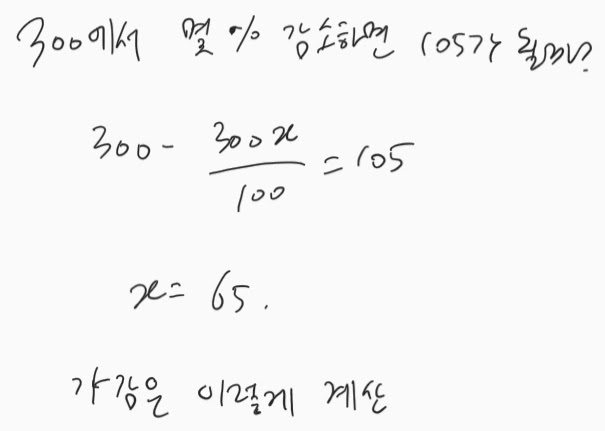 300에서 몇 % 감소하면 105가 될까?
300 - 300x/100 = 105
x = 65.
가감은 이렇게 계산